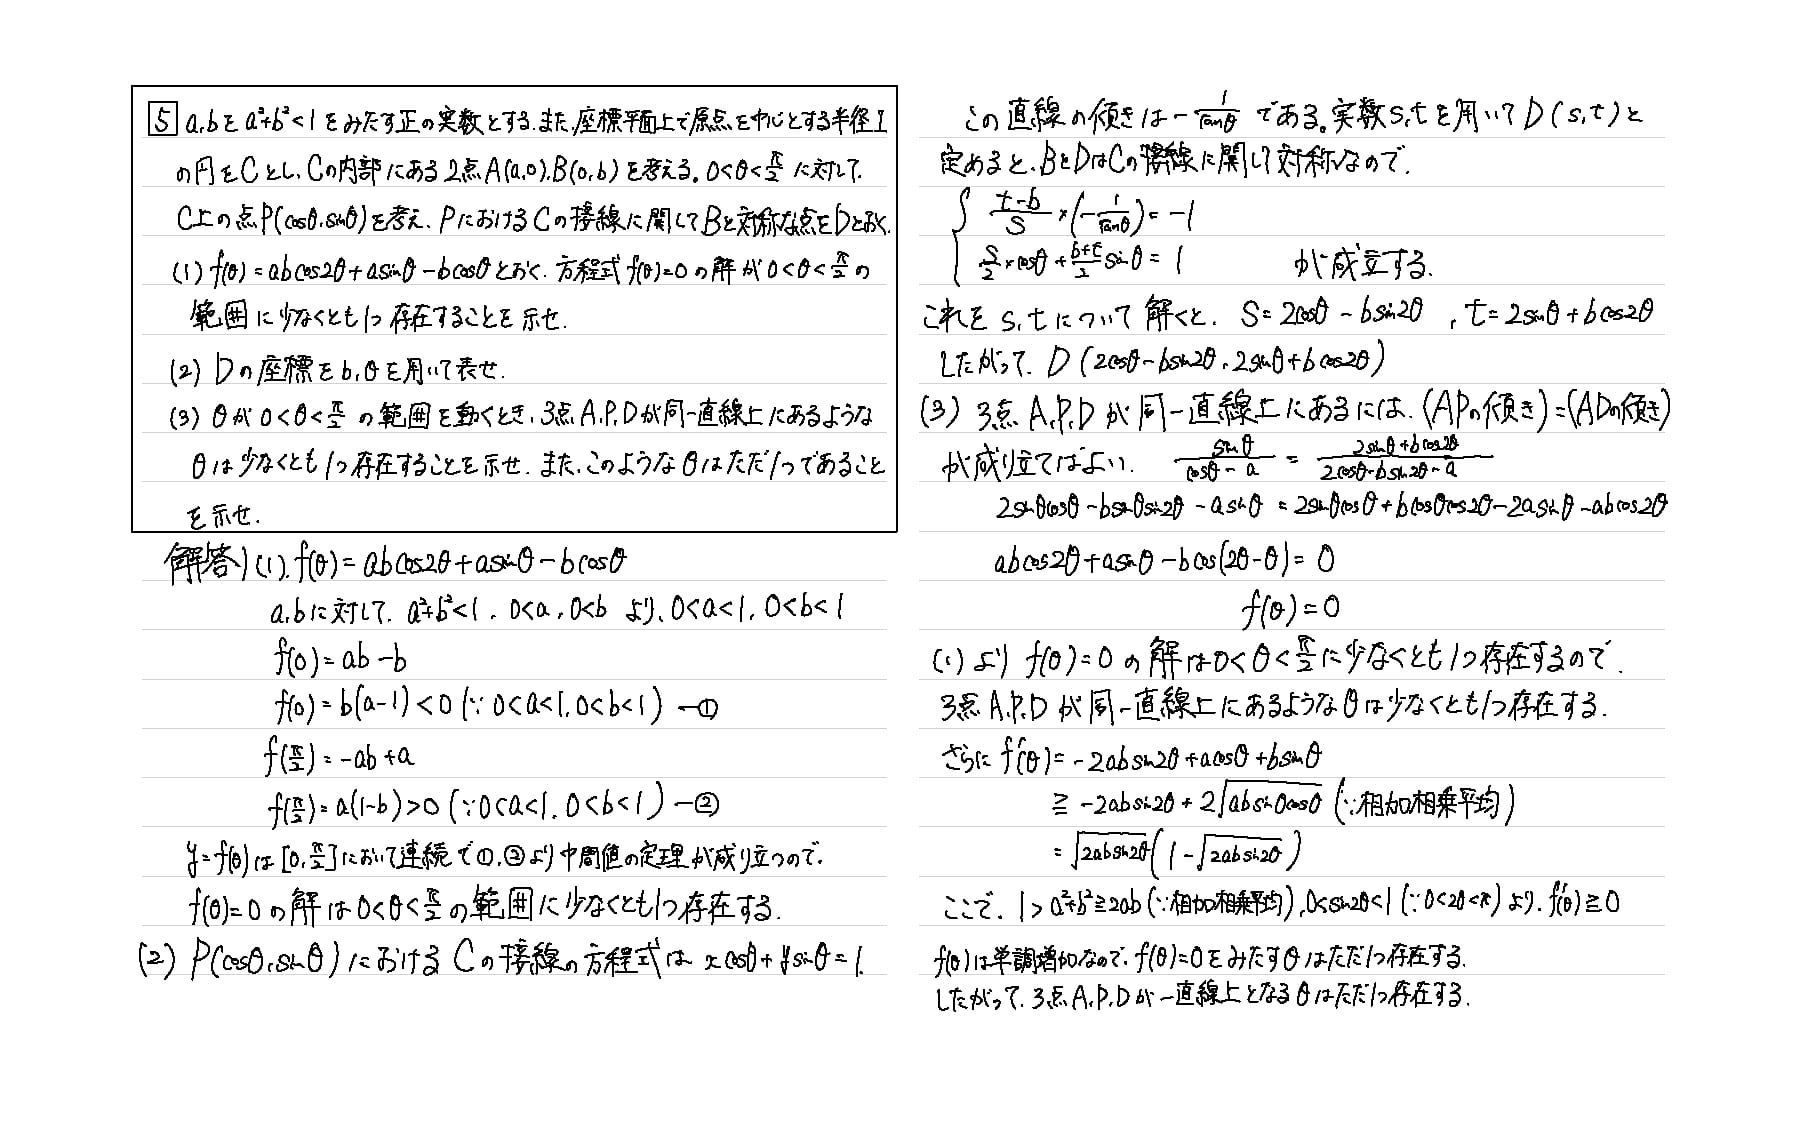 5 a,bをa²+b²<1をみたす正の実数とする.また,座標平面上で原点を中心とする半径1
の円をCとし,Cの内部にある2点A(a,0),B(0,b)を考える。0<θ<π/2に対して,
C上の点P(cosθ,sinθ)を考え,PにおけるCの接線に関してBと対称な点をDとおく.
(1) f(θ)=abcos2θ+asinθ-bcosθとおく.方程式f(θ)=0の解が0<θ<π/2の
範囲に少なくとも1つ存在することを示せ.
(2) Dの座標をb,θを用いて表せ.
(3) θが0<θ<π/2の範囲を動くとき,3点A,P,Dが同一直線上にあるような
θは少なくとも1つ存在することを示せ.また,このようなθはただ1つであること
を示せ.
解答)(1). f(θ)=abcos2θ+asinθ-bcosθ
a,bに対して,a²+b²<1, 0<a,0<b より,0<a<1, 0<b<1
f(0)=ab-b
f(0)=b(a-1)<0 (∵0<a<1,0<b<1) —①
f(π/2)=-ab+a
f(π/2)=a(1-b)>0 (∵0<a<1, 0<b<1) —②
y=f(θ)は[0,π/2]において連続で①,②より中間値の定理が成り立つので,
f(θ)=0の解は0<θ<π/2の範囲に少なくとも1つ存在する.
(2) P(cosθ,sinθ)におけるCの接線の方程式はxcosθ+ysinθ=1.
この直線の傾きは-1/tanθである。実数s,tを用いてD(s,t)と
定めると,BとDはCの接線に関して対称なので,
{ (t-b)/s×(-1/tanθ)=-1
s/2×cosθ+(b+t)/2 sinθ=1 が成立する.
これをs,tについて解くと, s=2cosθ-bsin2θ , t=2sinθ+bcos2θ
したがって, D(2cosθ-bsin2θ, 2sinθ+bcos2θ)
(3) 3点A,P,Dが同一直線上にあるには,(APの傾き)=(ADの傾き)
が成り立てばよい. sinθ/(cosθ-a) = (2sinθ+bcos2θ)/(2cosθ-bsin2θ-a)
2sinθcosθ-bsinθsin2θ-asinθ=2sinθcosθ+bcosθcos2θ-2asinθ-abcos2θ
abcos2θ+asinθ-bcos(2θ-θ)=0
f(θ)=0
(1)より f(θ)=0の解は0<θ<π/2に少なくとも1つ存在するので,
3点A,P,Dが同一直線上にあるようなθは少なくとも1つ存在する.
さらに f'(θ)=-2absin2θ+acosθ+bsinθ
≧-2absin2θ+2√(absinθcosθ) (∵相加相乗平均)
=√(2absin2θ)(1-√(2absin2θ))
ここで, 1>a²+b²≧2ab (∵相加相乗平均), 0<sin2θ<1 (∵0<2θ<π)より, f'(θ)≧0
f(θ)は単調増加なので,f(θ)=0をみたすθはただ1つ存在する.
したがって,3点A,P,Dが一直線上となるθはただ1つ存在する.